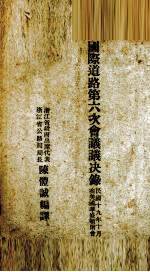 國際道路第六次會議議決錄
民國十九年十月
在美國華盛頓開會
浙江省政府出席代表
浙江省公路局局長
陳體誠編譯